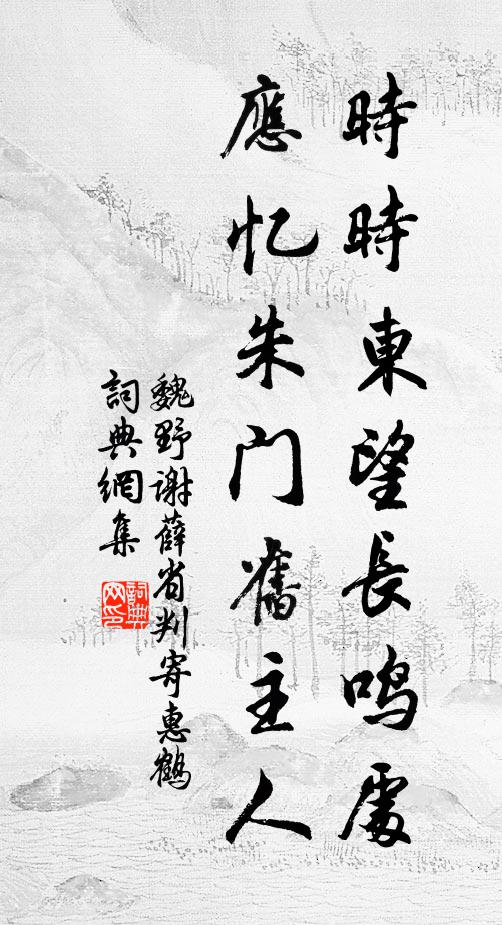 時時東望長鳴處
應忆朱門舊主人
魏野谢薛省判寄惠鶴
詞典網集
詞典網印